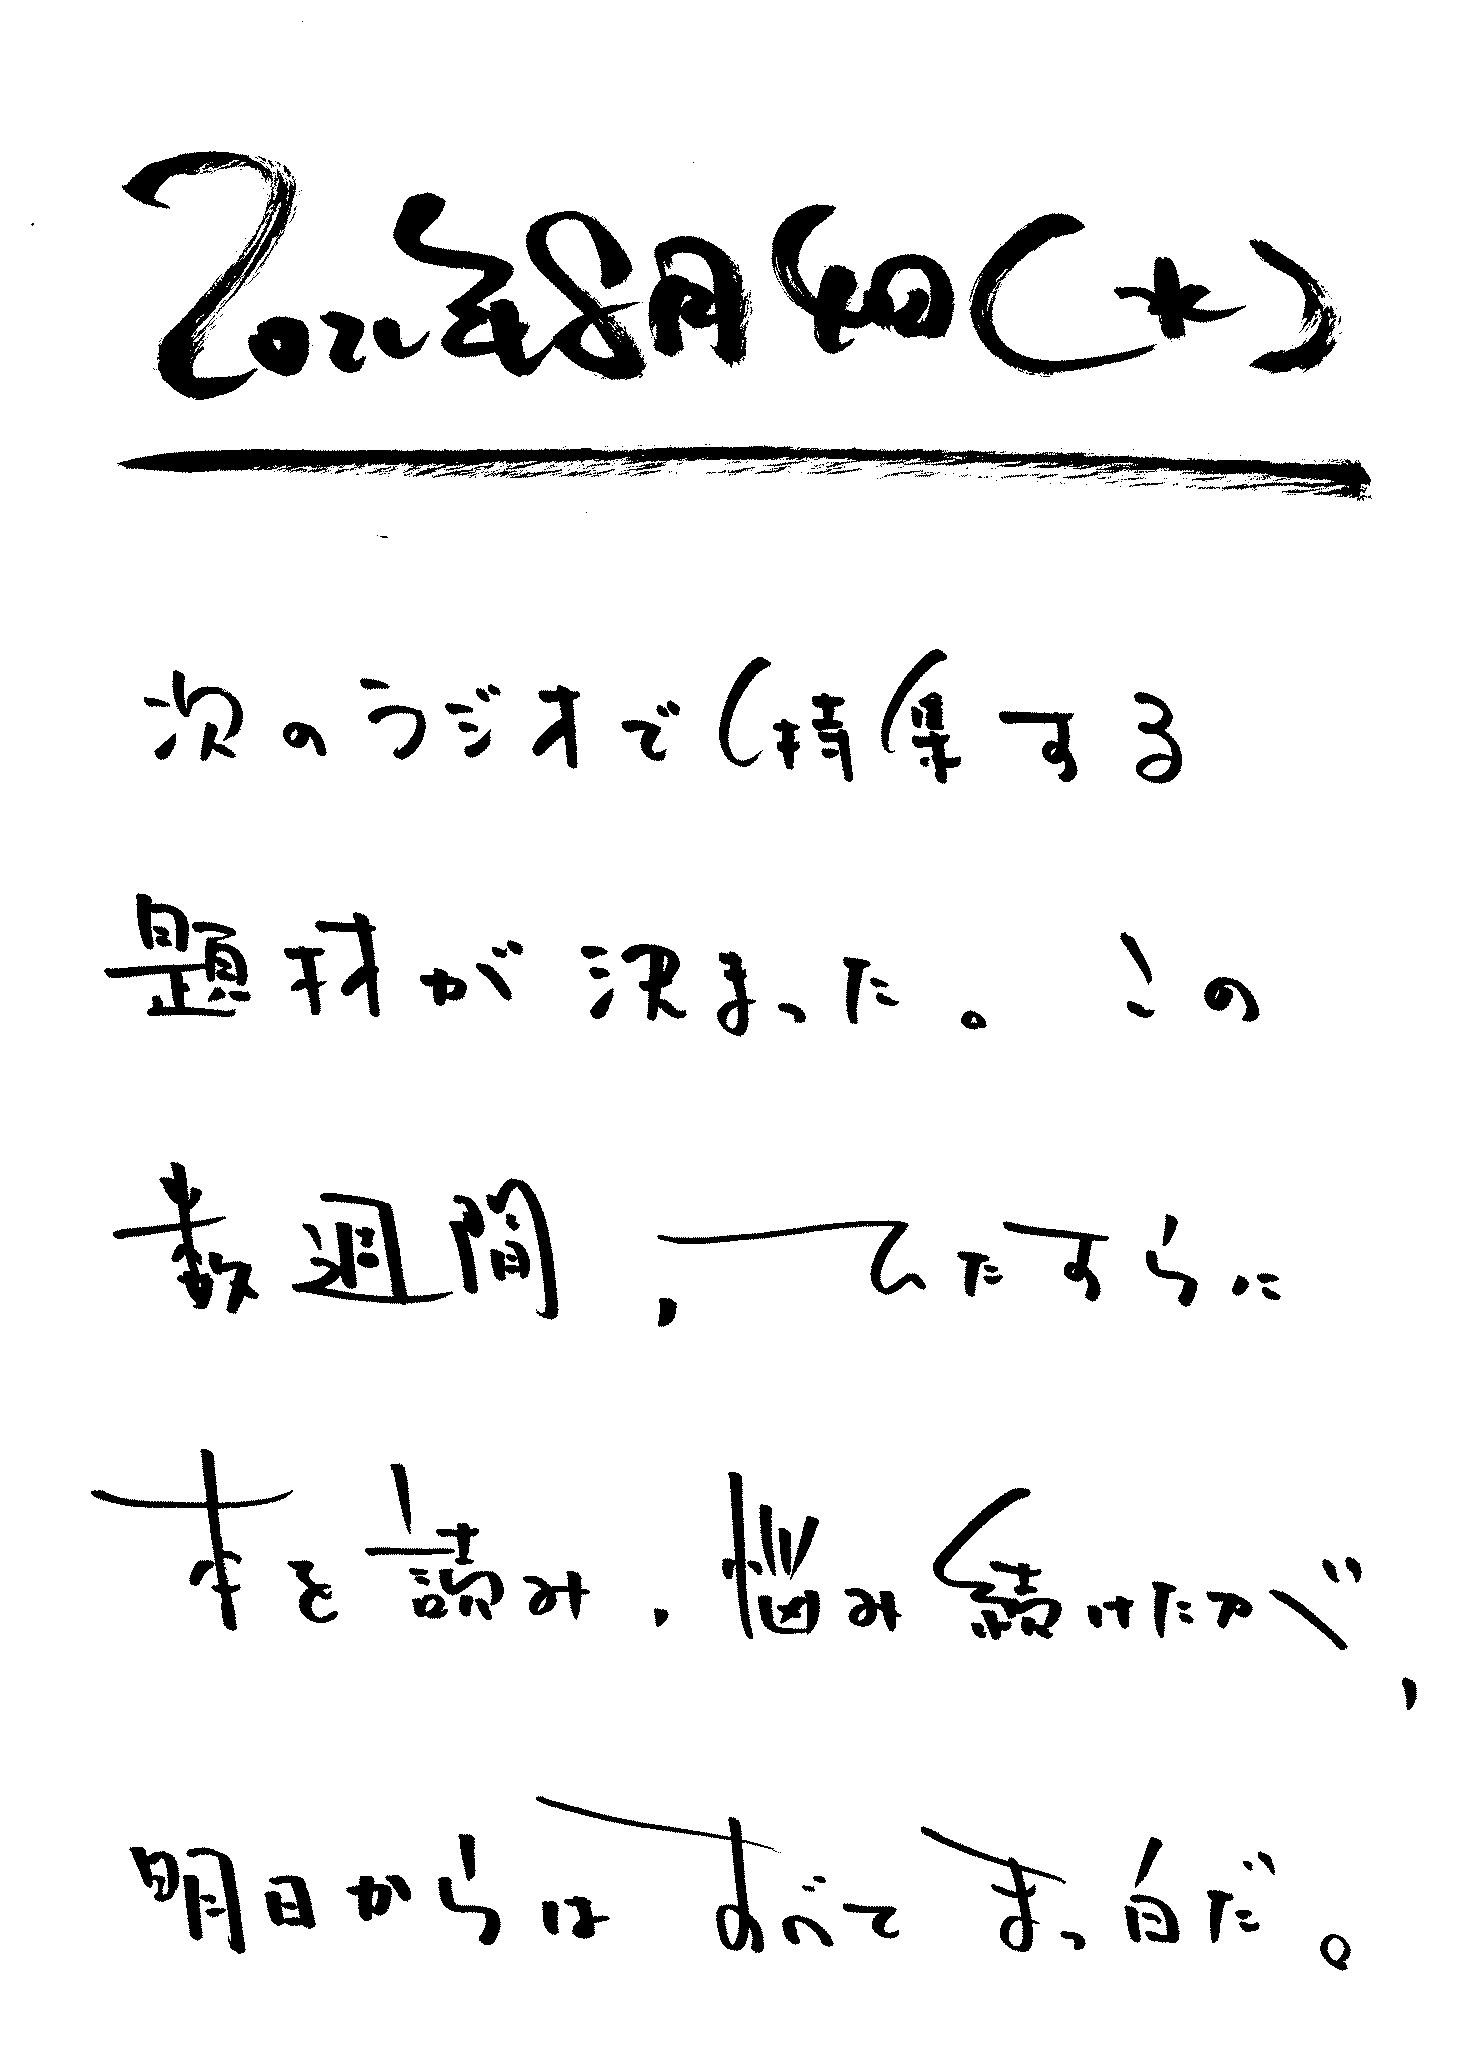 2021年8月4日(水)
次のラジオで特集する
題材が決まった。この
数週間，ひたすらに
本を読み，悩み続けたが，
明日からはすべてまっ白だ。